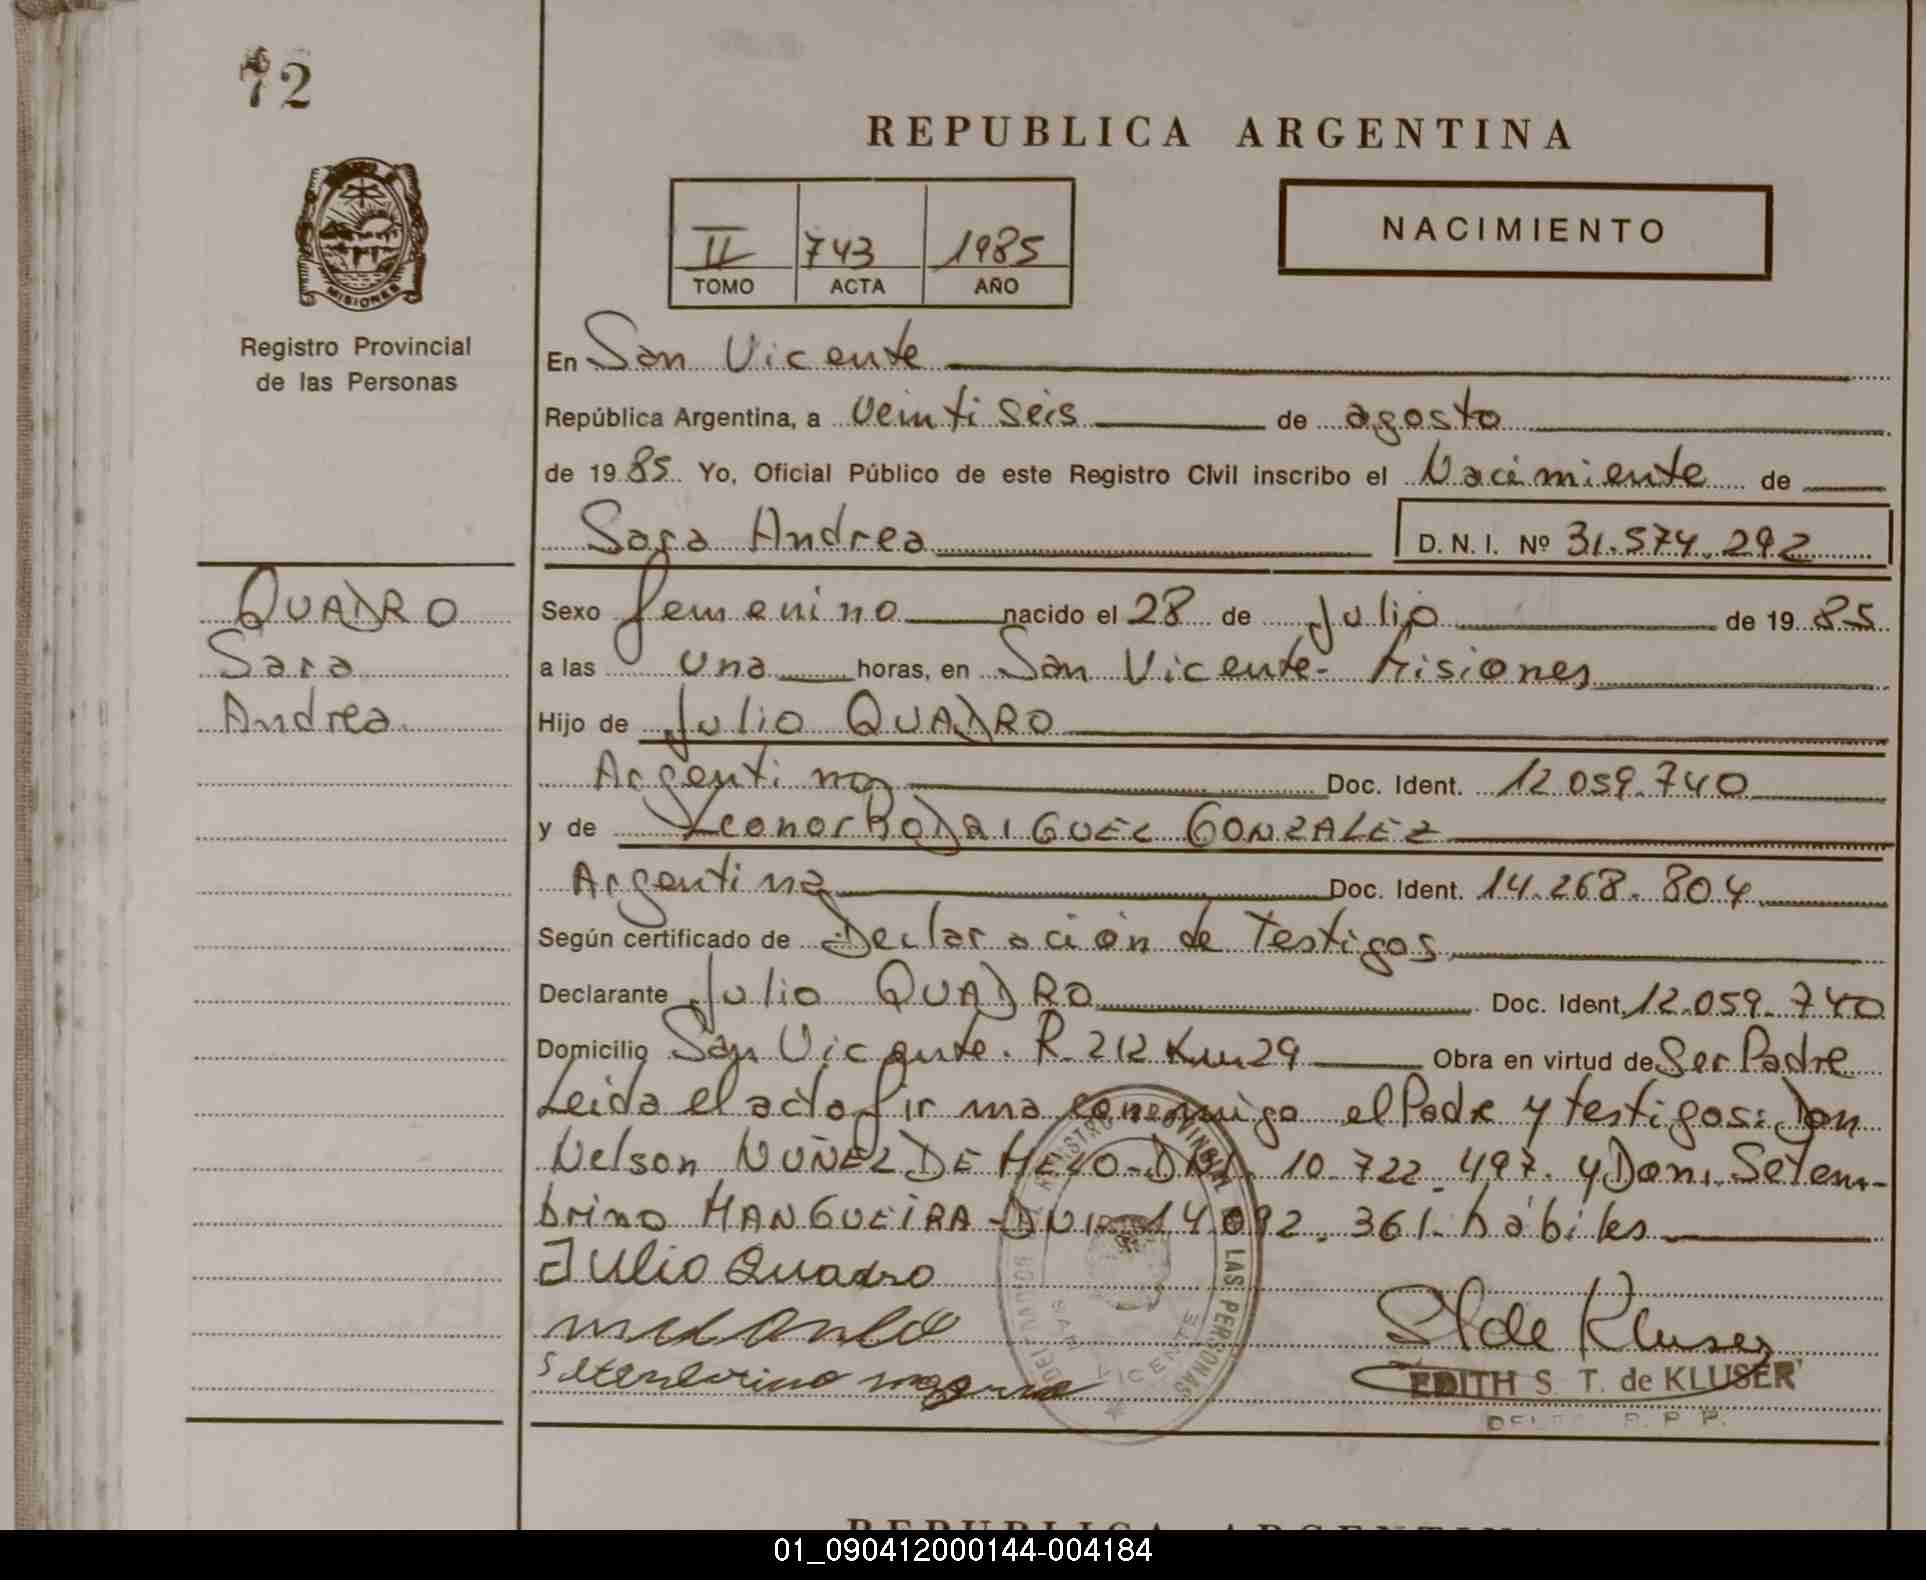 72
REPUBLICA ARGENTINA
NACIMIENTO
II 743 1985
TOMO ACTA AÑO
MISIONES
Registro Provincial
de las Personas
En San Vicente
República Argentina, a veinti seis de agosto
de 1985. Yo, Oficial Público de este Registro Civil inscribo el Nacimiento de
Sara Andrea D. N. I. Nº 31.574.292
QUADRO
Sara
Andrea
Sexo femenino nacido el 28 de Julio de 1985
a las una horas, en San Vicente- Misiones
Hijo de Julio QUADRO
Argentino Doc. Ident. 12.059.740
y de Leonor RODRIGUEZ GONZALEZ
Argentina Doc. Ident. 14.268.804
Según certificado de Declaración de Testigos
Declarante Julio QUADRO Doc. Ident. 12.059.740
Domicilio San Vicente. R. 212 Km 29 Obra en virtud de Ser Padre
Leida el acta firma conmigo el Padre y testigos: Don
Nelson NUÑEZ DE MELO-DNI. 10.722.497. y Don. Setem-
brino MANGUEIRA-DNI 14.092.361. hábiles
Julio Quadro
REGISTRO PROVINCIAL DE LAS PERSONAS
SAN VICENTE
S T de Kluser
EDITH S. T. de KLUSER
REPUBLICA ARGENTINA
01_090412000144-004184